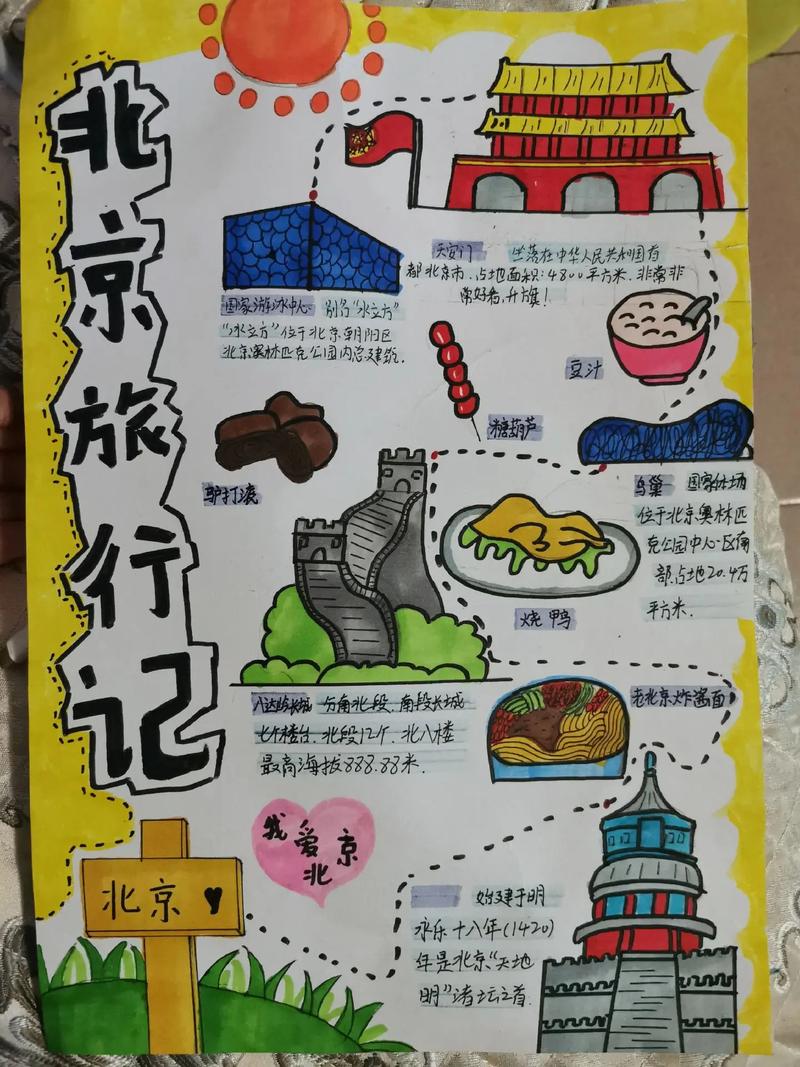 北京旅行记
天安门 坐落在中华人民共和国首
都北京市.占地面积:4800平方米.非常非
常好看,升旗!
国家游泳中心 别名"水立方"
"水立方"位于北京朝阳区
北京奥林匹克公园内总建筑.
豆汁
糖葫芦
驴打滚
鸟巢 国家体场
位于北京奥林匹
克公园中心区南
部.占地20.4万
平方米.
烧鸭
老北京炸酱面
八达岭长城 分南北段.南段长城
七个楼台.北段12个.北八楼
最高海拔888.88米.
我爱北京
北京
始建于明
永乐十八年(1420)
年是北京"天地
明"诸坛之首.